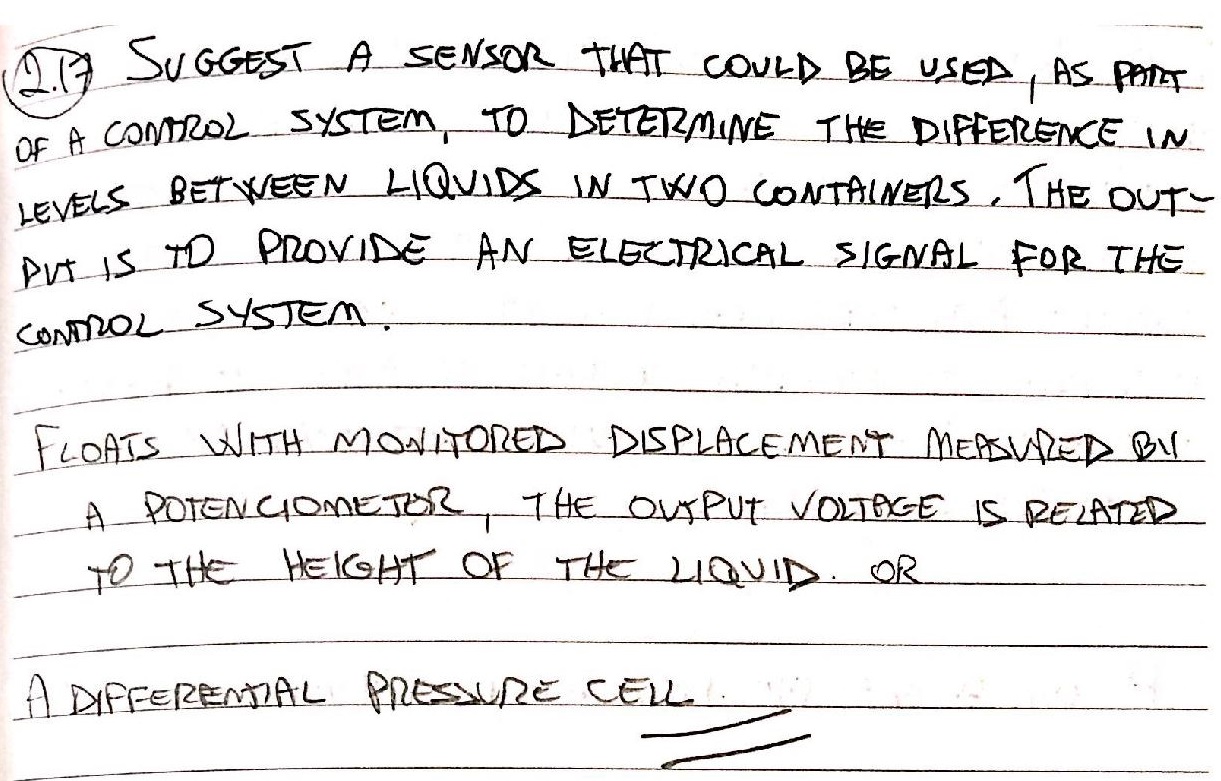 2.17 SUGGEST A SENSOR THAT COULD BE USED, AS PART
OF A CONTROL SYSTEM, TO DETERMINE THE DIFFERENCE IN
LEVELS BETWEEN LIQUIDS IN TWO CONTAINERS. THE OUT-
PUT IS TO PROVIDE AN ELECTRICAL SIGNAL FOR THE
CONTROL SYSTEM.
FLOATS WITH MONITORED DISPLACEMENT MEASURED BY
A POTENCIOMETOR, THE OUTPUT VOLTAGE IS RELATED
TO THE HEIGHT OF THE LIQUID. OR
A DIFFERENTIAL PRESSURE CELL.